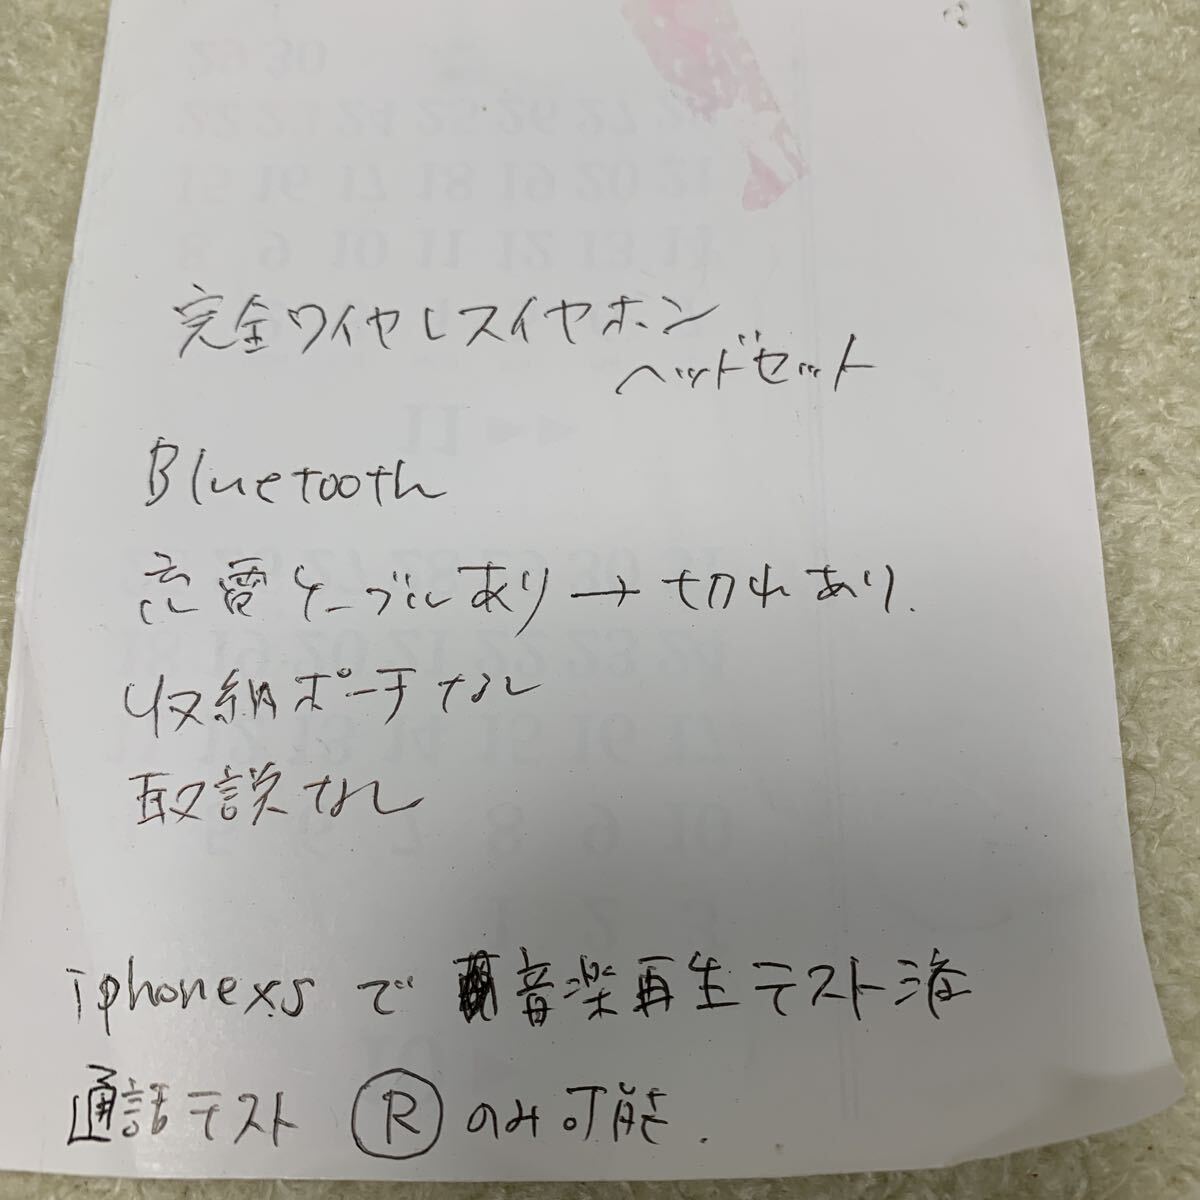 完全ワイヤレスイヤホン
ヘッドセット
Bluetooth
充電ケーブルあり→切れあり.
収納ポーチなし
取説なし
iphonexsで 音楽再生テスト済
通話テスト Ⓡのみ可能.